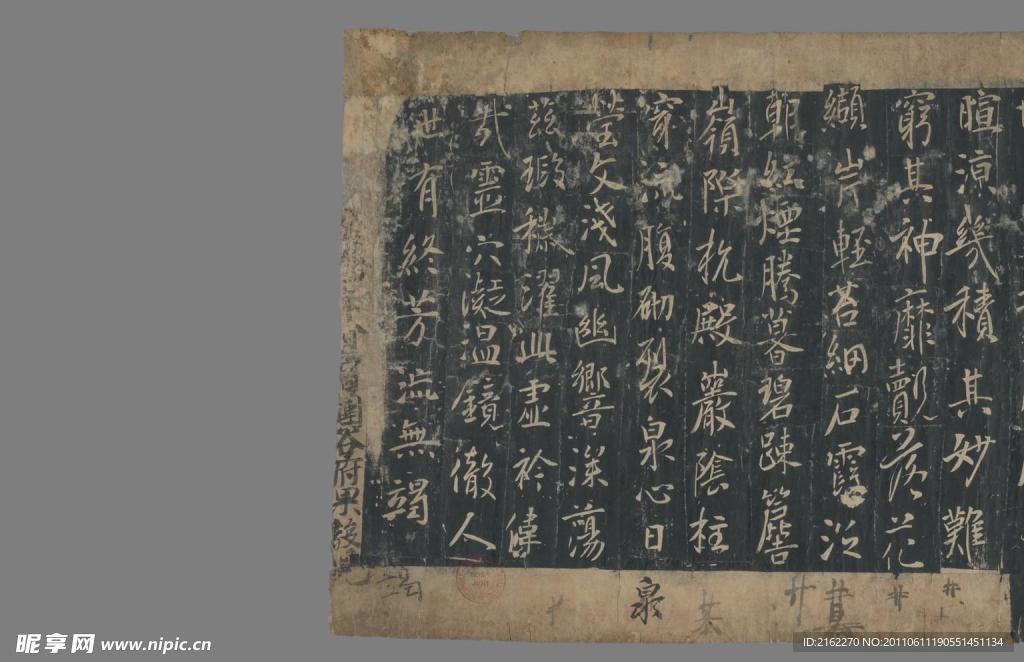 暄涼幾積其妙難
窮其神靡覿落花
纈岸輕苔網石霞泛
朝紅煙騰暮碧踈簷
嶺際杭殿巖陰柱
穿流腹砌裂泉心日
瑩文淺風幽響深蕩
茲瑕穢濯此虛衿偉
哉靈穴凝温鏡徹人
世有終芳流無竭
圍谷府果毅兒
泉
昵享网 www.nipic.cn
ID:2162270 NO:20110611190551451134